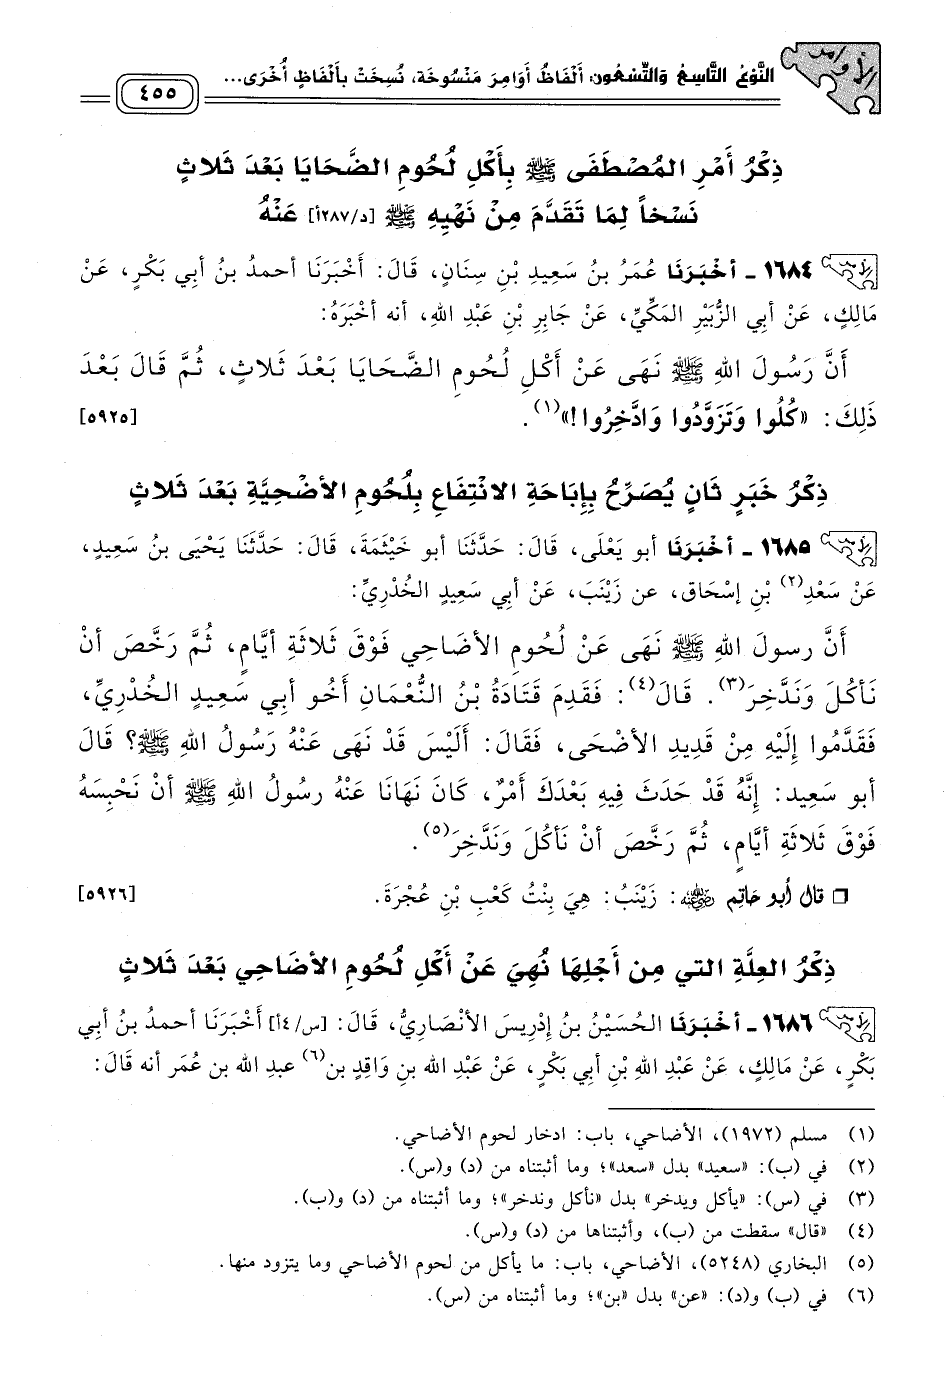 الأوامر
النَّوْعُ التَّاسِعُ والتِّسْعُون: أَلْفَاظُ أَوَامِرَ مَنْسُوخَة، نُسِخَتْ بأَلْفَاظٍ أُخْرَى...
٤٥٥
ذِكْرُ أَمْرِ المُصْطَفَى ﷺ بِأَكْلِ لُحُومِ الضَّحَايَا بَعْدَ ثَلاثٍ
نَسْخاً لِمَا تَقَدَّمَ مِنْ نَهْيِهِ ﷺ [د/٢٨٧أ] عَنْهُ
١٦٨٤ - أَخْبَرَنَا عُمَرُ بنُ سَعِيدِ بْنِ سِنَانٍ، قَالَ: أَخْبَرَنَا أحمدُ بنُ أبي بَكْرٍ، عَنْ
مَالِكٍ، عَنْ أبي الزُّبَيْرِ المَكِّيِّ، عَنْ جَابِرِ بْنِ عَبْدِ اللهِ، أنه أَخْبَرَهُ:
أَنَّ رَسُولَ اللهِ ﷺ نَهَى عَنْ أَكْلِ لُحُومِ الضَّحَايَا بَعْدَ ثَلاثٍ، ثُمَّ قَالَ بَعْدَ
ذَلِكَ: «كُلُوا وَتَزَوَّدُوا وَادَّخِرُوا!»(١). [٥٩٢٥]
ذِكْرُ خَبَرٍ ثَانٍ يُصَرِّحُ بِإبَاحَةِ الانْتِفَاعِ بِلُحُومِ الأُضْحِيَّةِ بَعْدَ ثَلاثٍ
١٦٨٥ - أَخْبَرَنَا أبو يَعْلَى، قَالَ: حَدَّثَنَا أبو خَيْثَمَةَ، قَالَ: حَدَّثَنَا يَحْيَى بنُ سَعِيدٍ،
عَنْ سَعْدِ(٢) بْنِ إسْحَاق، عن زَيْنَبَ، عَنْ أبي سَعِيدٍ الخُدْرِيِّ:
أَنَّ رسولَ اللهِ ﷺ نَهَى عَنْ لُحُومِ الأضَاحِي فَوْقَ ثَلاثَةِ أيَّامٍ، ثُمَّ رَخَّصَ أنْ
نَأكُلَ وَنَدَّخِرَ(٣). قَالَ(٤): فَقَدِمَ قَتَادَةُ بْنُ النُّعْمَانِ أخُو أبي سَعِيدٍ الخُدْرِيِّ،
فَقَدَّمُوا إلَيْهِ مِنْ قَدِيدِ الأضْحَى، فَقَالَ: أَلَيْسَ قَدْ نَهَى عَنْهُ رَسُولُ اللهِ ﷺ؟ قَالَ
أبو سَعِيد: إنَّهُ قَدْ حَدَثَ فِيهِ بَعْدَكَ أَمْرٌ، كَانَ نَهَانَا عَنْهُ رسُولُ اللهِ ﷺ أنْ نَحْبِسَهُ
فَوْقَ ثَلاثَةِ أيَّامٍ، ثُمَّ رَخَّصَ أنْ نَأكُلَ وَنَدَّخِرَ(٥).
❑ قال أبو حَاتِم رضي الله عنه: زَيْنَبُ: هِيَ بِنْتُ كَعْبِ بْنِ عُجْرَةَ. [٥٩٢٦]
ذِكْرُ العِلَّةِ التي مِن أجْلِهَا نُهِيَ عَنْ أَكْلِ لُحُومِ الأضَاحِي بَعْدَ ثَلاثٍ
١٦٨٦ - أَخْبَرَنَا الحُسَيْنُ بنُ إدْرِيسَ الأنْصَارِيُّ، قَالَ: [س/٤أ] أَخْبَرَنَا أحمدُ بنُ أبي
بَكْرٍ، عَنْ مَالِكٍ، عَنْ عَبْدِ اللهِ بْنِ أبي بَكْرٍ، عَنْ عَبْدِ الله بنِ وَاقِدِ بن(٦) عبدِ الله بن عُمَر أنه قَالَ:
(١) مسلم (١٩٧٢)، الأضاحي، باب: ادخار لحوم الأضاحي.
(٢) في (ب): «سعيد» بدل «سعد»؛ وما أثبتناه من (د) و(س).
(٣) في (س): «يأكل ويدخر» بدل «نأكل وندخر»؛ وما أثبتناه من (د) و(ب).
(٤) «قال» سقطت من (ب)، وأثبتناها من (د) و(س).
(٥) البخاري (٥٢٤٨)، الأضاحي، باب: ما يأكل من لحوم الأضاحي وما يتزود منها.
(٦) في (ب) و(د): «عن» بدل «بن»؛ وما أثبتناه من (س).